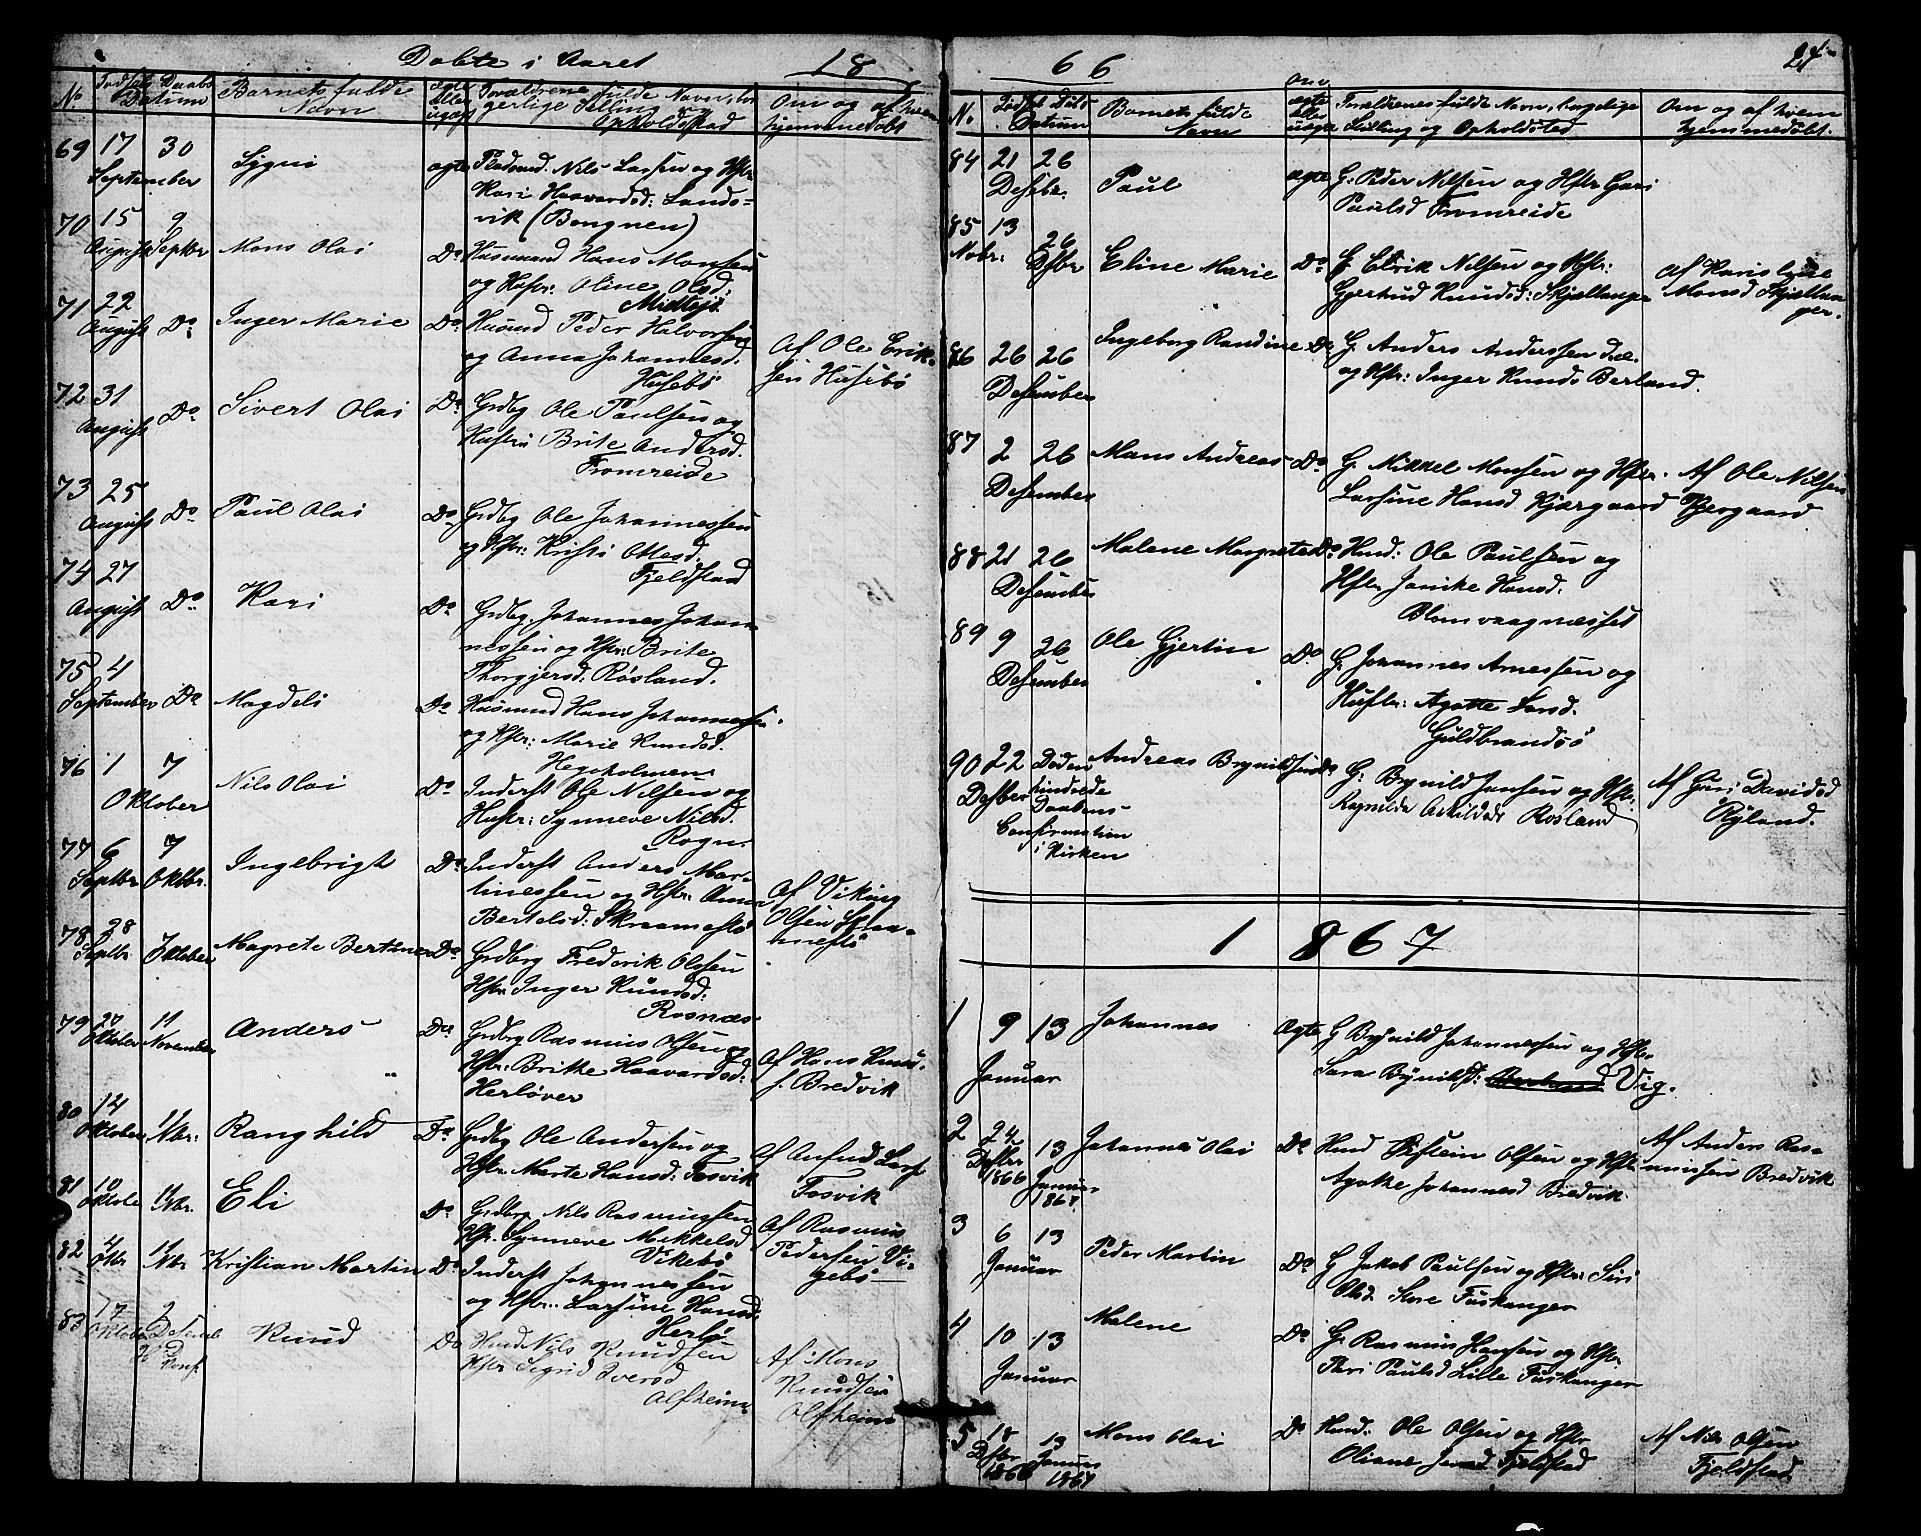 Døbte i Aaret 18
No
Fødsel Daabs
Datum
Barnets fulde
Navn
ægte
eller
uægt
Forældrene fulde Navne, bor
gerlige Stilling og
Opholdsstad
Om og af hvem
hjemmedøbt
69 17 30
September
ægte
Nils Larsen og Hstr
Kari Haavardsd: Lands=
vik (Bongnen)
70 15 9
August Septbr Mons Olai Do Husmand Hans Monsen
og Hustr: Oline Olsd:
Midtøjs
71 22
August Do Inger Marie Do Husmd Peder Halvorsen
og Anna Johannesd.
Husebø
Af Ole Erik-
sen Husebø
72 31
August Do Sivert Olai Do Grdbg Ole Paulsen og
Hustru Brite Andersd.
Fromreide
73 25
August Do Paul Olai Do Grdbg Ole Johannessen
og Hstr: Kristi Ottesd.
Fjeldstad
74 27
August Do Kari Do Grdbg. Johannes Johan-
nessen og Hstr: Brite
Thorgjersd. Røsland.
75 4
September Do Magdeli Do Husmand Hans Johannessen
og Hstr: Marie Knudsd.
Hegholmen
76 1 7
Oktober Nils Olai Do Inderst Ole Nilsen og
Hustr: Synneve Nilsd.
Rogn
77 6 7
Septbr Oktbr. Ingebrigt Do Inderst Anders Mar-
tinessen og Hstr: Anna
Bertelsd: Skraamestø
Af Viking
Olsen Skraa-
mestø
78 28
Septbr 7 Oktober Magrete Bertine Do Grdbrg Frederik Olsen
Hstr Inger Knudsd:
Rosnæs
79 20 11
Oktober November Anders Do Grdbrg Rasmus Olsen og
Hstr: Brithe Haavardsd:
Herløver
Af Hans Knud-
s. Bredvik
80 14
Oktober 11 Nbr: Rang hild Do Grdbg Ole Andersen og
Hstr Marte Hansd: Tosvik
Af Anfind Lars
Tosvik
81 10
Oktobe 11 Nbr. Eli Do Grdbrg Nils Rasmussen
Hstr. Synneve Mikkelsd
Vikebø
Af Rasmus
Pedersen Vi-
gebø
82 4
Oktbr 11 Nbr Kristian Martin Do Inderst Johannessen
og Hstr. Larsine Hansd.
Herlø
83 17 2
Oktober Desemb
Knud Do Husmd Nils Knudsen
Hstr Sigrid Iversd
Alfheim
Af Mons
Knudsen
Alfheim
66
24
N.
Fødsel Døbs
Datum
Barnets fulde
Navn
om
ægte
eller
uægte
Forældrenes fulde Navn, borgelige
Stilling og Opholdsted
Om og af hvem
hjemmedøbt.
84 21 26
Desbr. Paul ægte G: Peder Nilsen og Hstr Gari
Paulsd Fromreide
85 13
Nobr: 26 Dsbr Eline Marie Do G: Elrik Nilsen og Hstr:
Gjertrud Knudsd: Skjællanger
Af Karis
Monsd Skjællan-
ger.
86 26 26
Desember Ingeborg Randine Do G. Anders Anderssen
og Hstr: Inger Knuds Berland.
87 2 26
Desember Mans Andreas Do G: Mikkel Monsen og Hstr.
Larsine Hansd Kjærgaard
Af Ole Nilsen
Kjergaard
88 21 26
Desember Malene Margrete Do Husd: Ole Paulsen og
Hstr Janike Hansd.
Blomvaagnæsset
89 9 26
Desember Ole Gjertin Do G. Johannes Arnessen og
Hustr: Agatte Larsd.
Guldbrandsø
90 22
Desber
Døden
hindrede
Daabens
Confirmation
i Kirken
Andreas Brynildsen Do G: Brynild Jansen og Hstr.
Ragnilda Askildsd: Rosland
Af Guri Davidsd
Ryland.
1867
1 9 13
Januar Johannes ægte G Brynild Johannessen og Hstr
Sara Bryniksd: Vig.
2 24
Desbr
1866
13
Januar
1867
Johannes Olai Do Husd Øistein Olsen og Hstr
Agathe Johannesd Bredvik
Af Anders Ras-
mussen Bredvik
3 6 13
Januar Peder Martin Do G Jakob Paulsen og Hstr: Siri
Olsd. Store Fuskanger
4 10 13
Januar Malene Do G: Rasmus Hansen og Hstr
Kari Paulsd Lille Fuskanger
5 18
Desbr
1866
13
Januar
1867
Mons Olai Do Husd. Ole Olsen og Hstr
Oliane Fjeldstad
Af Nils Olsen
Fjeldstad